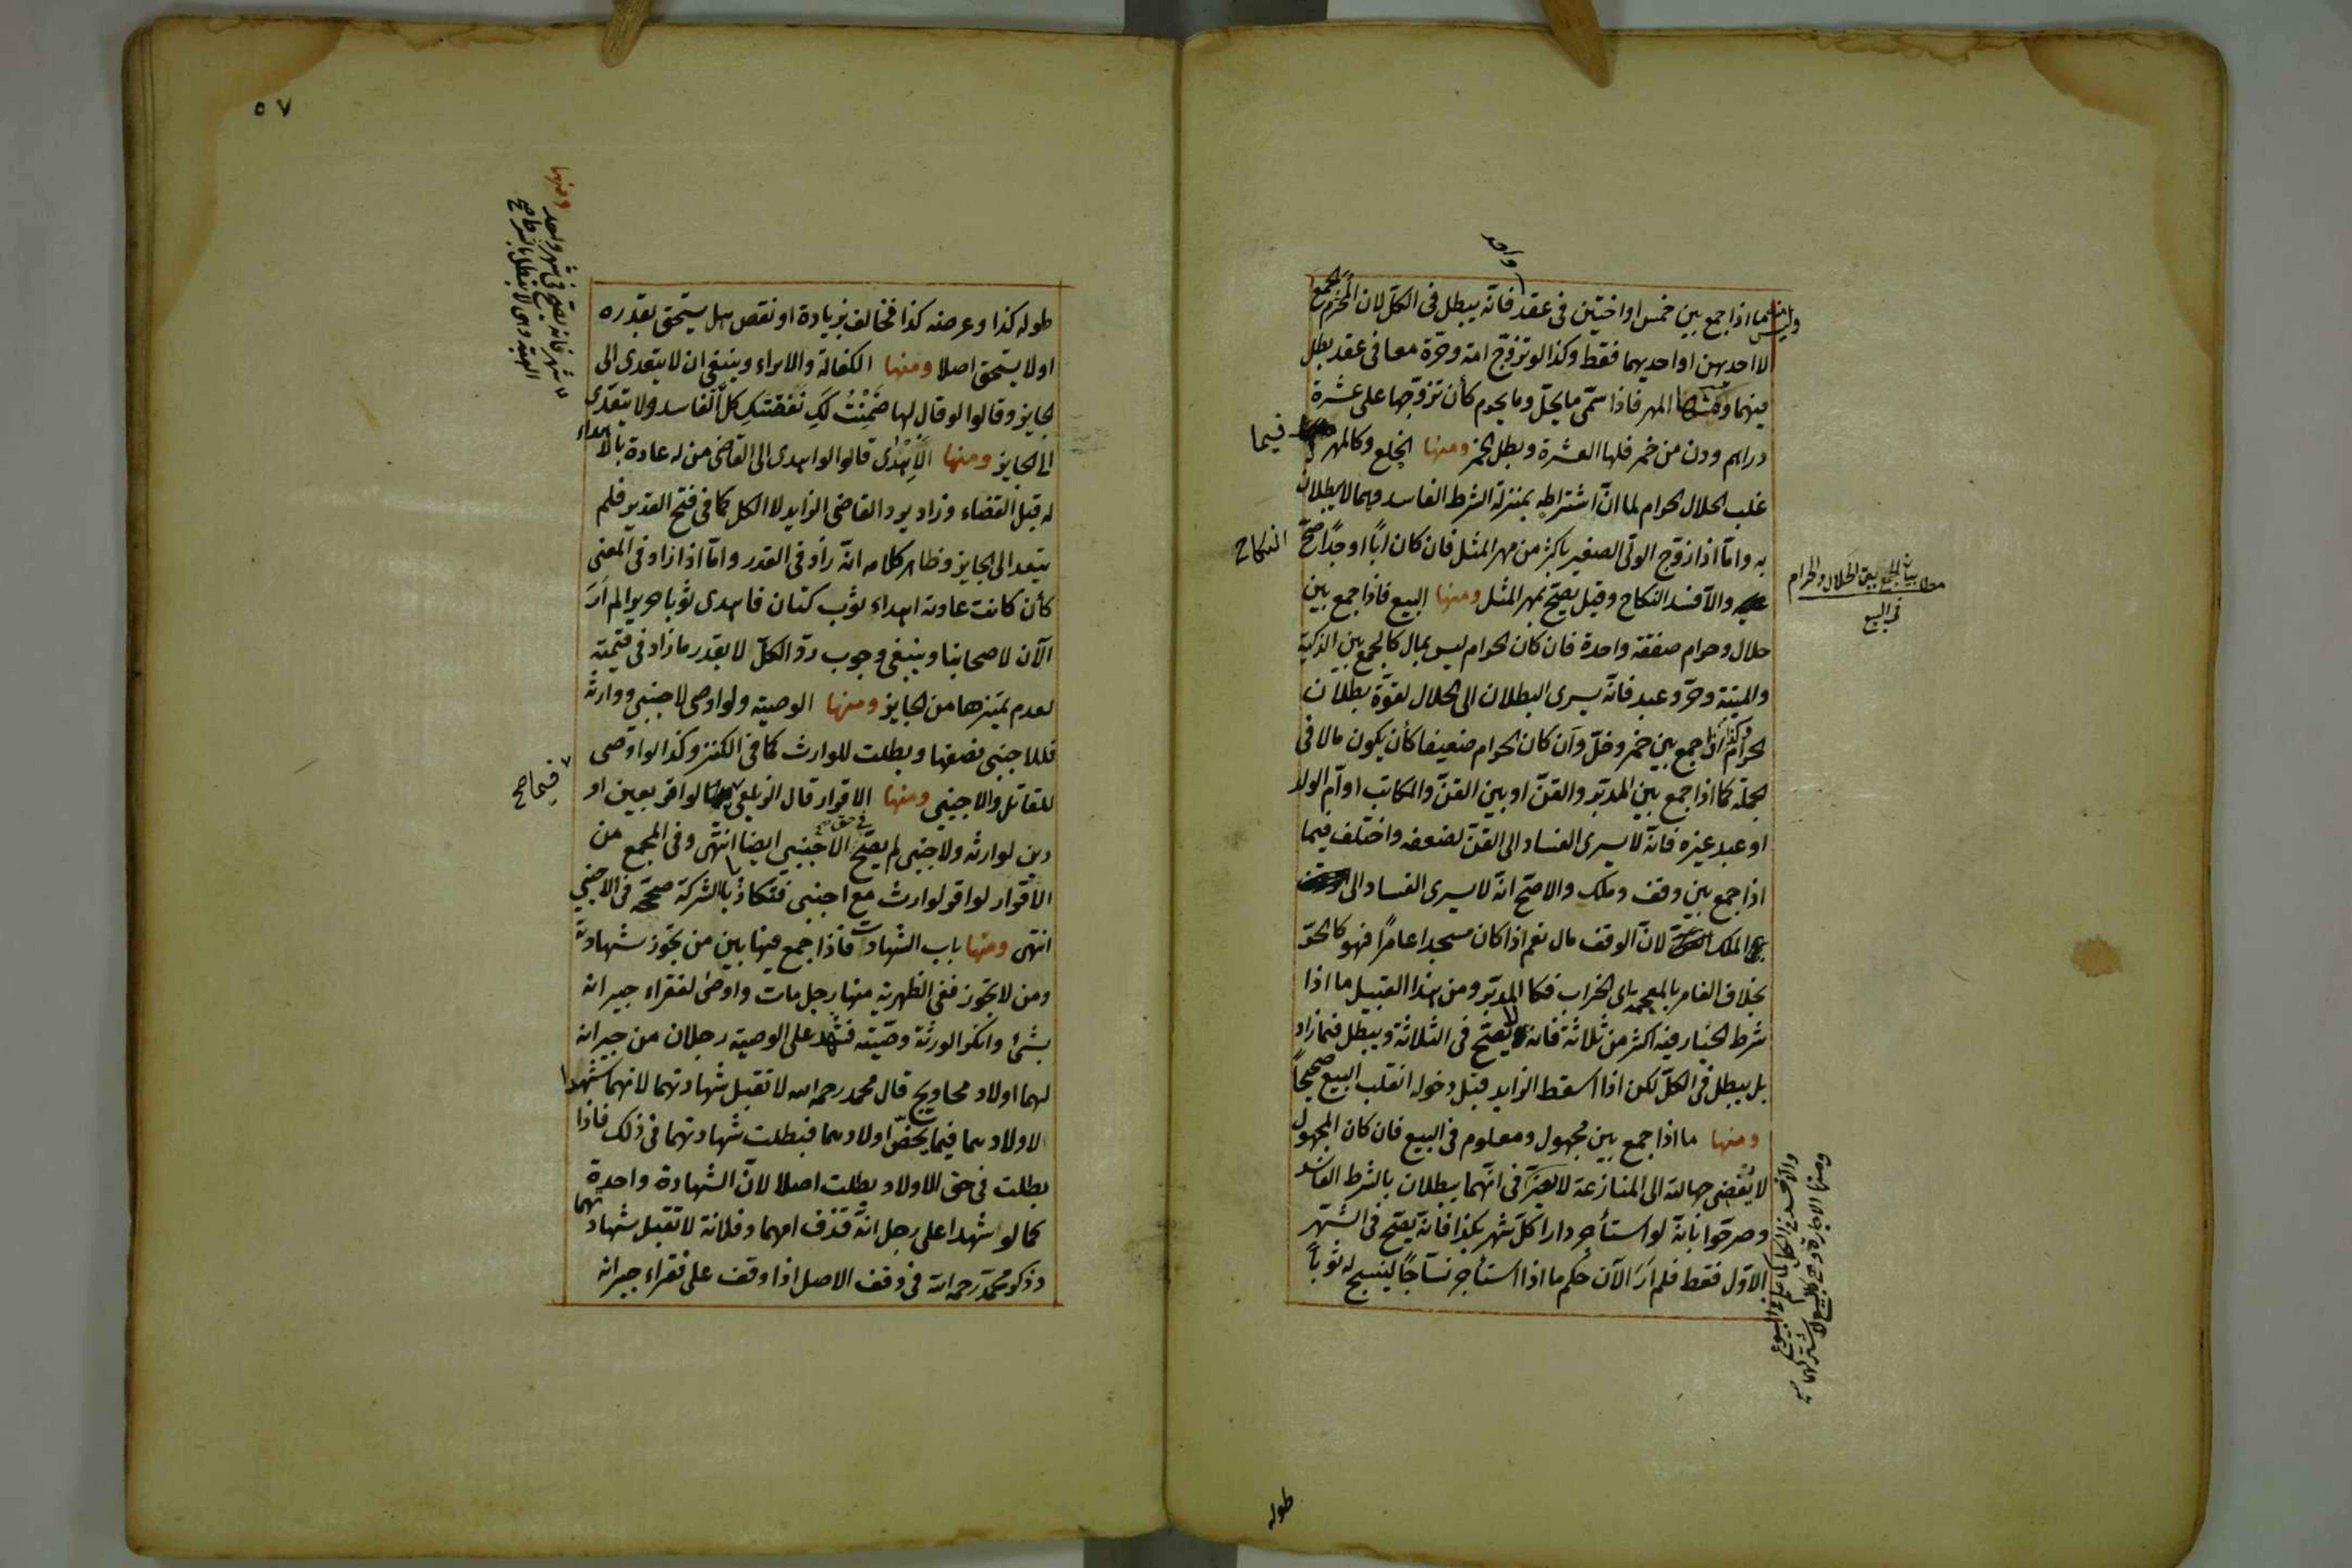 واحد
وليس منها ما اذا جمع بين خمس او اختين في عقد فانه يبطل في الكل لان المحرم الجمع
لا احديهن او احديهما فقط وكذا لو تزوج امة وحرة معا في عقد بطل
فيهما ومنها المهر فاذا سمّى ما يحلّ وما يحرم كأن تزوجها على عشرة
دراهم ودن من خمر فلها العشرة وبطل الخمر ومنها الخلع وكالمهر فيما
غلب الحلال الحرام لما انّ اشتراطه بمنزلة الشرط الفاسد وهما لا يبطلان
به وامّا اذا زوج الولي الصغير باكثر من مهر المثل فان كان ابًا او جدًا صحّ النكاح
والّا فسد النكاح وقيل يصحّ بمهر المثل ومنها البيع فاذا جمع بين
مطلب بيان الجمع بين الحلال والحرام
في البيع
حلال وحرام صفقة واحدة فان كان الحرام ليس بمال كالجمع بين الذكية
والميتة وحرّ وعبد فانّه يسرى البطلان الى الحلال لقوّة بطلان
الحرام وكذا اذا جمع بين خمر وخلّ وان كان الحرام ضعيفا كأن يكون مالا في
الجملة كما اذا جمع بين المدبّر والقنّ او بين القنّ والمكاتب او أمّ الولد
او عبد غيره فانّه لا يسرى الفساد الى القنّ لضعفه واختلف فيما
اذا جمع بين وقف وملك والاصحّ انّه لا يسرى الفساد الى
الملك لانّ الوقف مال نعم اذا كان مسجدا عامرًا فهو كالحرّ
بخلاف الغامر بالمعجمة اى الخراب فكالمدبّر ومن هذا القبيل ما اذا
شرط الخيار فيه اكثر من ثلاثة فانه لا يصحّ في الثلاثة ويبطل فيما زاد
بل يبطل في الكلّ لكن اذا اسقط الزايد قبل دخوله انقلب البيع صحيحًا
ومنها ما اذا جمع بين مجهول ومعلوم في البيع فان كان المجهول
لا يُفْضى جهالته الى المنازعة لا يضرّ في انّهما يبطلان بالشرط الفاسد
وصرحوا بانّه لو استأجر دارا كلّ شهر بكذا فانّه يصحّ في الشهر
الاوّل فقط فلم أرَ الآن حكم ما اذا استأجر نسّاجًا لينسج له ثوباً
والّا فسد في الكل كما علم في البيوع
ومنها الاجارة وهى كالبيع لاشتراكهما
طوله
٥٧
ومنها
طوله كذا وعرضه كذا فخالف بزيادة او نقص هل يستحق بقدره
او لا يستحق اصلا ومنها الكفالة والابراء وينبغى ان لا يتعدى الى
الجايز وقالوا لو قال لها ضَمِنْتُ لَكِ نَفَقَتَكِ كل الفاسد ولا يتعدّى
الى الجايز ومنها الاِهْدٰى قالوا لو اهدى الى القاضى من له عادة بالاهداء
له قبل القضاء وزاد يرد القاضى الزايد لا الكل كما في فتح القدير فلم
يتعد الى الجايز وظاهر كلامه انّه زاد في القدر وامّا اذا زاد في المعنى
كأن كانت عادته اهداء ثوب كتان فاهدى ثوبا حريرا لم أرَ
الآن لاصحابنا وينبغى وجوب ردّ الكلّ لا بقدر ما زاد في قيمته
لعدم تميّزها من الجايز ومنها الوصية ولو اوصى لاجنبى ووارثه
فللاجنبى نصفها وبطلت للوارث كما في الكنز وكذا لو اوصى
للقاتل والاجنبي ومنها الاقرار قال الزيلعى لو اقر بعين او
دين لوارثه ولاجنبى لم يصحّ في حق الاجنبى ايضا انتهى وفي المجمع من
الاقرار لو اقر لوارث مع اجنبى فتكاذبا الشركة صحّحه في الاجنبي
انتهى ومنها باب الشهادات فاذا جمع فيها بين من تجوز شهادته
ومن لا تجوز ففى الظهرية منها رجل مات واوصٰى لفقراء جيرانه
بشئ وانكر الورثة وصيّته فشهد على الوصية رجلان من جيرانه
لهما اولاد محاويج قال محمد رحمه الله لا تقبل شهادتهما لانهما شهدا
لاولادهما فيما يخصّ اولادهما فبطلت شهادتهما في ذلك فاذا
بطلت في حق الاولاد بطلت اصلا لانّ الشهادة واحدة
كما لو شهدا على رجل انّه قذف امهما وفلانة لا تقبل شهادتهما
وذكر محمّد رحمه الله في وقف الاصل اذا وقف على فقراء جيرانه